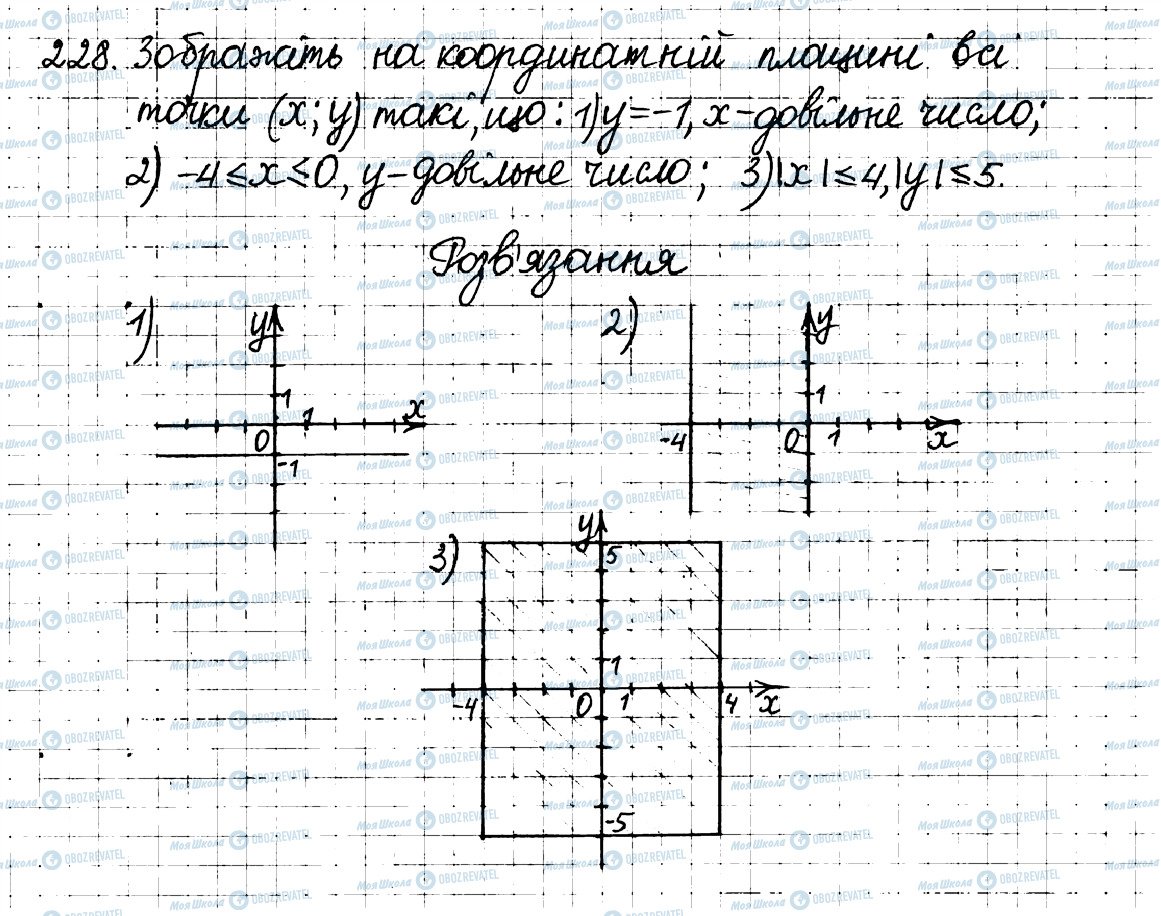 228. Зобразіть на координатній площині всі
точки (x; y) такі, що: 1) y = -1, x - довільне число;
2) -4 ≤ x ≤ 0, y - довільне число; 3) |x| ≤ 4, |y| ≤ 5.
Розв'язання
1) y 1 1 x 0 -1
2) y 1 -4 0 1 x
3) y 5 1 -4 0 1 4 x -5
Моя Школа OBOZREVATEL